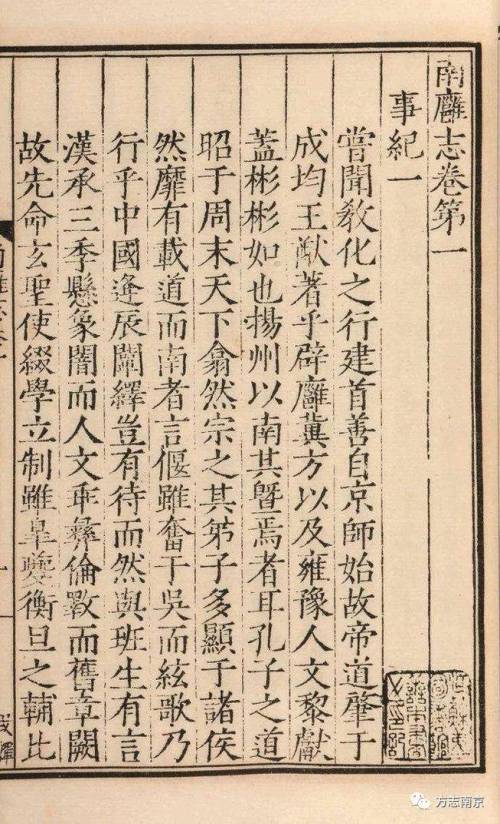 南廱志卷第一
事紀一
嘗聞敎化之行建首善自京師始故帝道肇于
成均王猷著乎辟廱冀方以及雍豫人文黎獻
蓋彬彬如也揚州以南其曁焉者耳孔子之道
昭于周末天下翕然宗之其弟子多顯于諸侯
然靡有載道而南者言偃雖奮于吳而絃歌乃
行乎中國逢辰闡繹豈有待而然與班生有言
漢承三季懸象闇而人文乖彝倫斁而舊章闕
故先命玄聖使綴學立制雖皐夔衡旦之輔比
方志南京